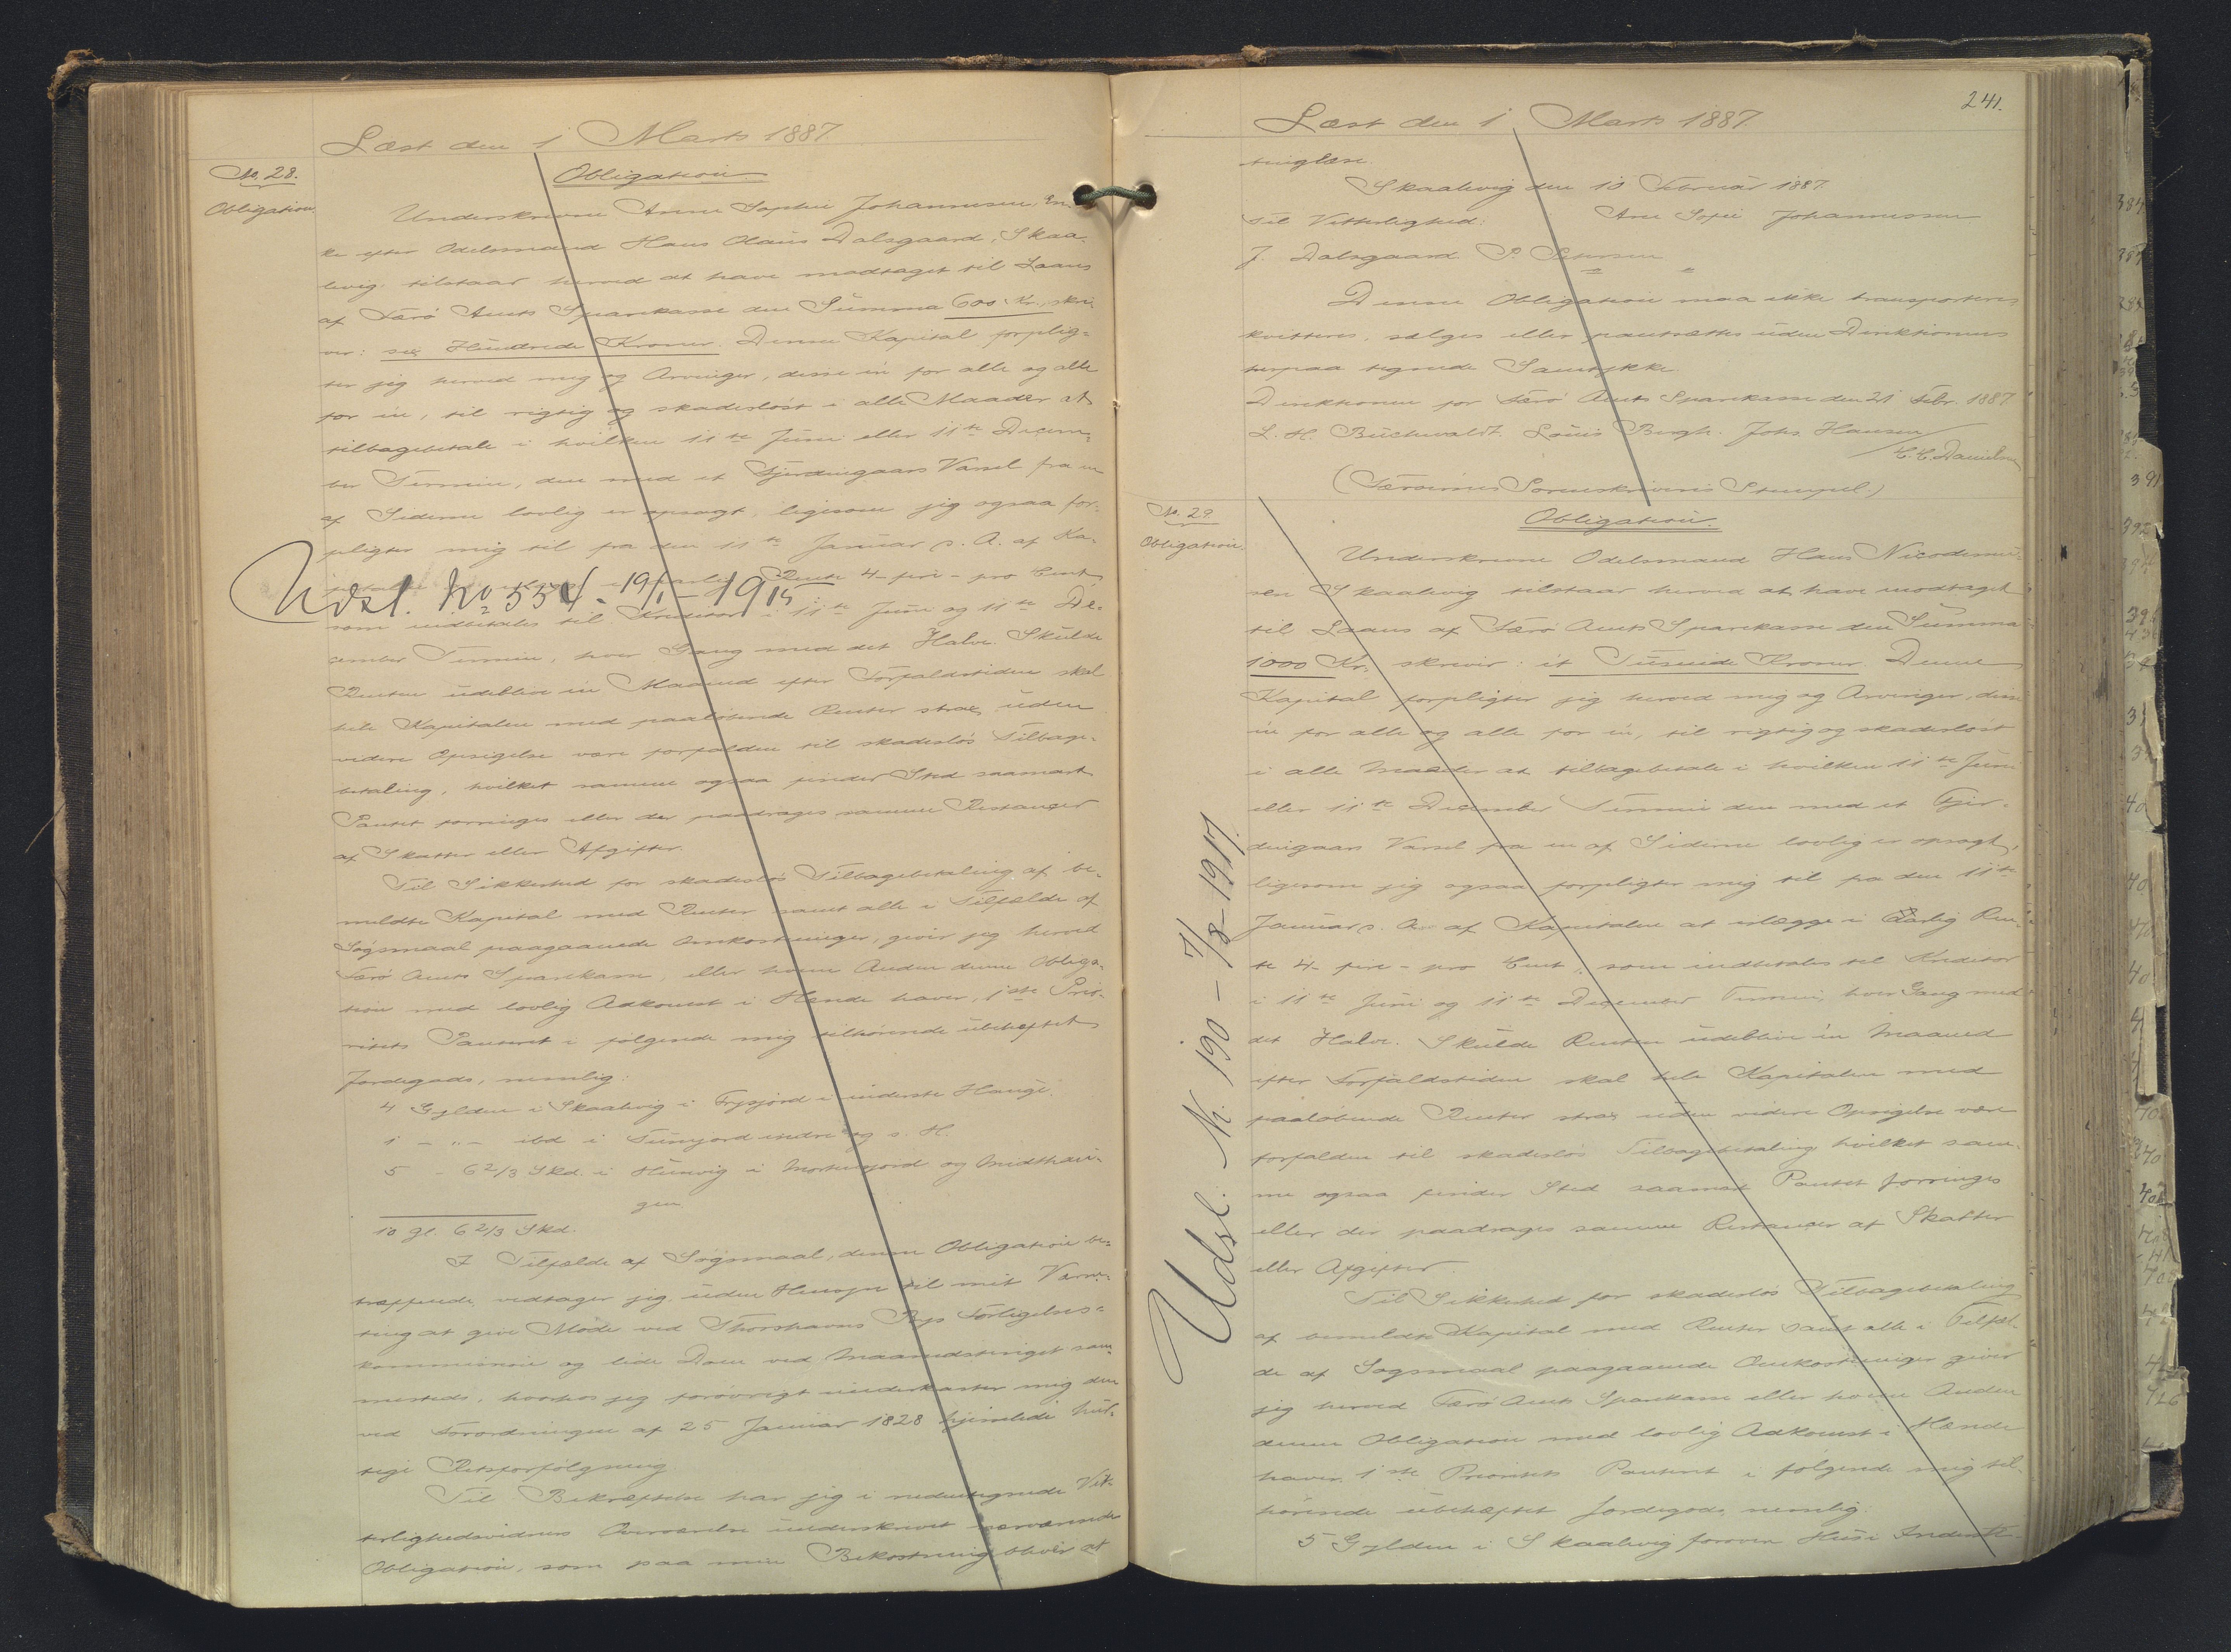 Læst den 1 Marts 1887.
No. 28.
Obligation.
Obligation
Underskrevne Anne Sophie Johannesen, En-
ke efter Odelsmand Hans Olaus Dalsgaard, Skaa-
levig, tilstaar herved at have modtaget til Laans
af Færø Amts Sparekasse den Summa 600 Kr., skri-
ver: sex Hundrede Kroner. Denne Kapital forplig-
ter jeg herved mig og Arvinger, desse én for alle og alle
for én, til rigtig og skadesløst i alle Maader at
tilbagebetale i hvilken 11te Juni eller 11te Decem-
ber Termin, den med et Fjerdingaars Varsel fra en
af Siderne lovlig er opsagt, ligesom jeg ogsaa for-
pligter mig til fra den 11te Januar d. A. af Ka-
Rente 4 - fire - pro Cent
Udsl. No 554 - 19/1 - 1915
som indbetales til Kreditor i 11te Juni og 11te De-
cember Termin, hver Gang med det Halve. Skulde
Renten udeblive en Maaned efter Forfaldstiden skal
hele Kapitalen med paaløbende Renter strax uden
videre Opsigelse være forfalden til skadesløs Tilbage-
betaling, hvilket samme ogsaa finder Sted saasnart
Pantet forringes eller der paadrages samme Restanzer
af Skatter eller Afgifter.
Til Sikkerhed for skadesløs Tilbagebetaling af be-
meldte Kapital med Renter samt alle i Tilfælde af
Søgsmaal paagaaende Omkostninger, giver jeg herved
Færø Amts Sparekasse, eller hvem Anden denne Obliga-
tion med lovlig Adkomst i Hænde haver, 1ste Prio-
ritets Panteret i følgende mig tilhørende ubehæftet
Jordegods, nemlig:
4 Gylden i Skaalevig i Frysjord i inderste Hauge.
1 - " - ibd i Tunjord indre og s. H.
5 - 6 2/3 Skd. i Husevig i Mortensjord og Midthau-
gen
10 gl. 6 2/3 Skd.
I Tilfælde af Søgsmaal, denne Obligation be-
træffende, vedtager jeg, uden Hensyn til mit Værne-
ting at give Møde ved Thorshavns Byes Forligelses-
kommission og lide Dom ved Maanedstinget sam-
mesteds, hvorhos jeg forøvrigt underkaster mig den
ved Forordningen af 25 Januar 1828 hjemlede hur-
tige Retsforfølgning
Til Bekræftelse har jeg i nedentegnede Vit-
terlighedsvidners Overværelse underskrevet nærværende
Obligation, som paa min Bekostning bliver at
241.
Læst den 1 Marts 1887.
tinglæse.
Skaalevig den 10 Februar 1887.
Til Vitterlighed: Ane Sofie Johannesson
J. Dalsgaard. P. Petersen
Denne Obligation maa ikke transporteres
kvitteres, sælges eller pantsættes uden Direktionens
herpaa tegnede Samtykke.
Direktionen for Færø Amts Sparekasse den 21 Febr. 1887
L. H. Buchwaldt. Louis Bergh. Johs. Hansen
/ C. C. Danielsen
(Færøernes Sorenskriveris Stempel.)
No. 29
Obligation.
Obligation.
Underskrevne Odelsmand Hans Nicodemus-
sen Skaalevig tilstaar herved at have modtaget
til Laans af Færø Amts Sparekasse den Summa
1000 Kr. skriver: et Tusinde Kroner. Denne
Kapital forpligter jeg herved mig og Arvinger, desse
én for alle og alle for én, til rigtig og skadesløst
i alle Maader at tilbagebetale i hvilken 11te Juni
eller 11te December Termin den med et Fjer-
dingaars Varsel fra en af Siderne lovlig er opsagt,
ligesom jeg ogsaa forpligter mig til fra den 11te
Januar d. A. af Kapitalen at erlægge i aarlig Ren-
te 4 - fire - pro Cent, som indbetales til Kreditor
i 11te Juni og 11te December Termin, hver Gang med
det Halve. Skulde Renten udeblive én Maaned
efter Forfaldstiden skal hele Kapitalen med
paaløbende Renter strax uden videre Opsigelse være
forfalden til skadesløs Tilbagebetaling hvilket sam-
me ogsaa finder Sted saasnart Pantet forringes
eller der paadrages samme Restanzer af Skatter
eller Afgifter.
Udsl. Nr. 190 - 7/8 - 1917.
Til Sikkerhed for skadesløs Tilbagebetaling
af bemeldte Kapital med Renter samt alle i Tilfæl-
de af Søgsmaal paagaaende Omkostninger giver
jeg herved Færø Amts Sparekasse eller hvem Anden
denne Obligation med lovlig Adkomst i Hænde
haver, 1ste Prioritets Panteret i følgende mig til-
hørende ubehæftet Jordegods, nemlig:
5 Gylden i Skaalevig forovn Huse